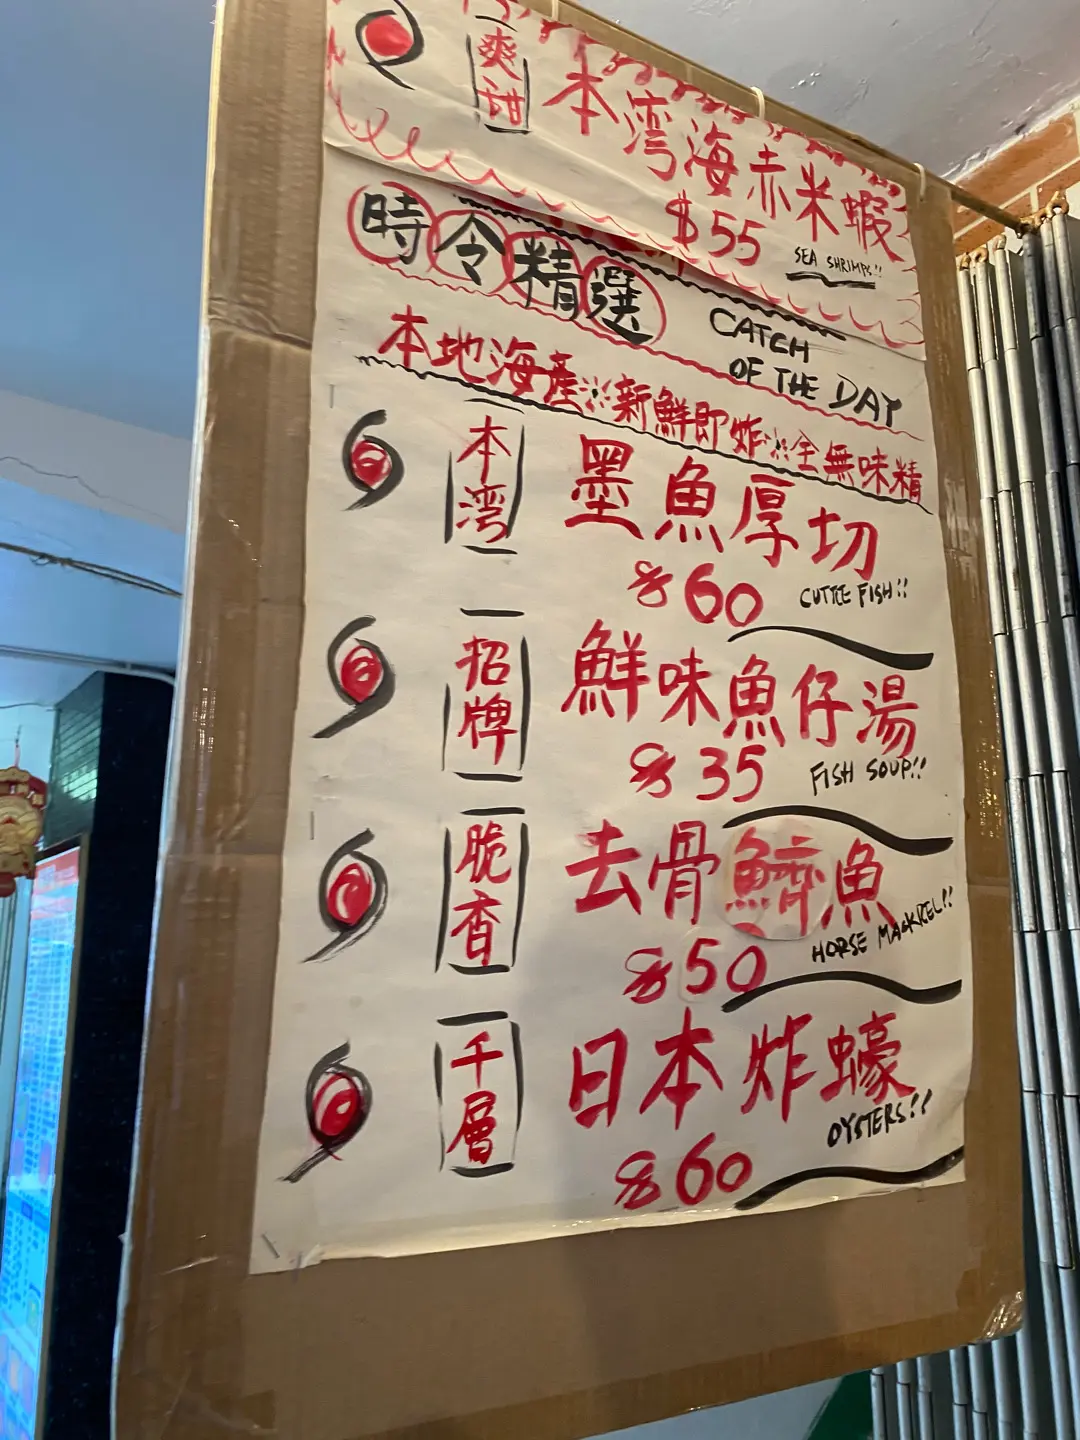 爽甜 本湾海赤米蝦
$55 SEA SHRIMPS!!
時令精選 CATCH
OF THE DAY
本地海產※新鮮即炸※全無味精
本湾 墨魚厚切
$60 CUTTLE FISH!!
招牌 鮮味魚仔湯
$35 FISH SOUP!!
脆香 去骨鱭魚
$50 HORSE MACKREL!!
千層 日本炸蠔
$60 OYSTERS!!